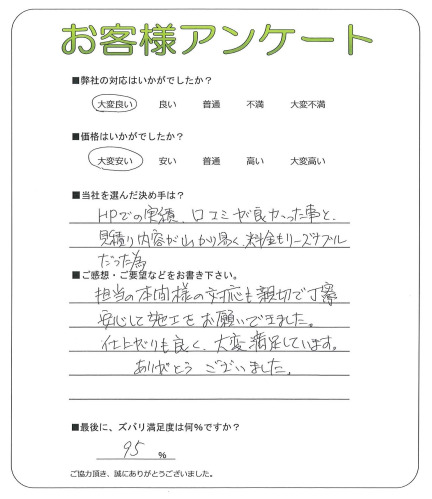 お客様アンケート
■弊社の対応はいかがでしたか？
大変良い 良い 普通 不満 大変不満
■価格はいかがでしたか？
大変安い 安い 普通 高い 大変高い
■当社を選んだ決め手は？
HPでの実績、口コミが良かった事と、
見積り内容が分かり易く、料金もリーズナブル
だった為
■ご感想・ご要望などをお書き下さい。
担当の本間様の対応も親切で丁寧
安心して施工をお願いできました。
仕上がりも良く、大変満足しています。
ありがとうございました。
■最後に、ズバリ満足度は何%ですか？
95 %
ご協力頂き、誠にありがとうございました。